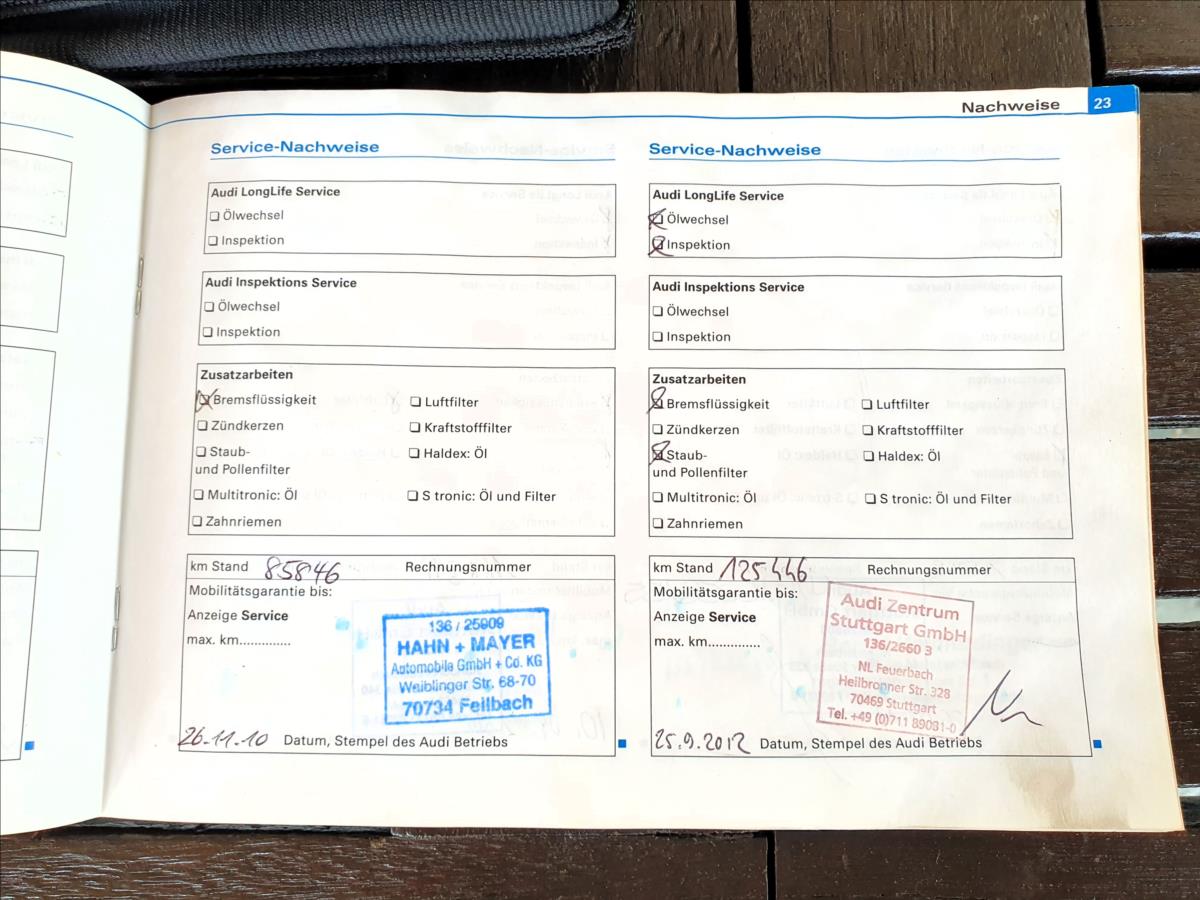 Nachweise 23
Service-Nachweise
Audi LongLife Service
Ölwechsel
Inspektion
Audi Inspektions Service
Ölwechsel
Inspektion
Zusatzarbeiten
Bremsflüssigkeit
Luftfilter
Zündkerzen
Kraftstofffilter
Staub-
und Pollenfilter
Haldex: Öl
Multitronic: Öl
S tronic: Öl und Filter
Zahnriemen
km Stand 85846 Rechnungsnummer
Mobilitätsgarantie bis:
Anzeige Service
max. km..............
136 / 25909
HAHN + MAYER
Automobile GmbH + Co. KG
Waiblinger Str. 68-70
70734 Fellbach
26.11.10 Datum, Stempel des Audi Betriebs
Service-Nachweise
Audi LongLife Service
Ölwechsel
Inspektion
Audi Inspektions Service
Ölwechsel
Inspektion
Zusatzarbeiten
Bremsflüssigkeit
Luftfilter
Zündkerzen
Kraftstofffilter
Staub-
und Pollenfilter
Haldex: Öl
Multitronic: Öl
S tronic: Öl und Filter
Zahnriemen
km Stand 125446 Rechnungsnummer
Mobilitätsgarantie bis:
Anzeige Service
max. km..............
Audi Zentrum
Stuttgart GmbH
136/2660 3
NL Feuerbach
Heilbronner Str. 328
70469 Stuttgart
Tel. +49 (0)711 89081-0
25.9.2012 Datum, Stempel des Audi Betriebs